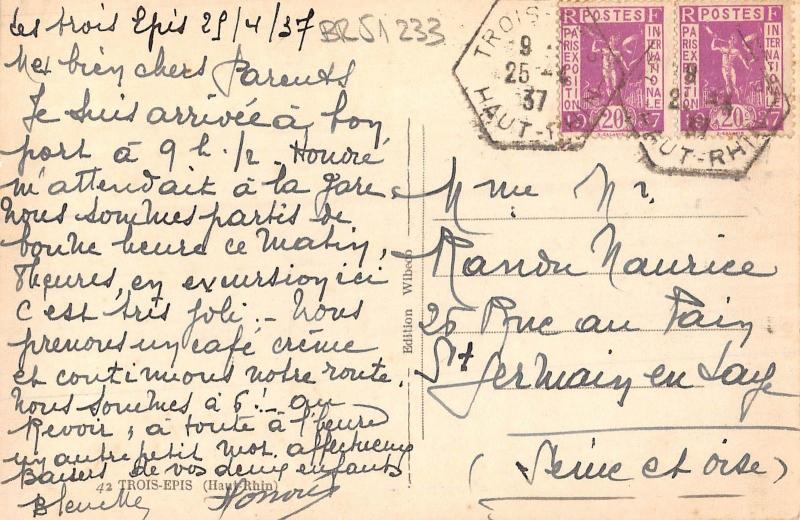 Les trois Epis 25/4/37
BR51233
Mes bien chers Parents
Je suis arrivée à bon
port à 9 h. 1/2 Honoré
m'attendait à la gare
Nous sommes partis de
bonne heure ce matin,
7 heures, en excursion ici
C'est très joli. - Nous
prenons un café crème
et continuons notre route.
Nous sommes à 6! - au
Revoir, à toute à l'heure
un autre petit mot. affectueux
Baisers de vos deux enfants
Honoré
42 TROIS-EPIS (Haut-Rhin)
Edition Wilbeco
TROIS-
9
25-4
37
HAUT-
RF POSTES
PARIS EXPOSITION INTERNATIONALE
19 20c 37
RF POSTES
PARIS EXPOSITION INTERNATIONALE
20c 37
HAUT-RHIN
Mme Mr.
Maurice
26 Rue au Pain
St Germain en Laye
(Seine et oise)